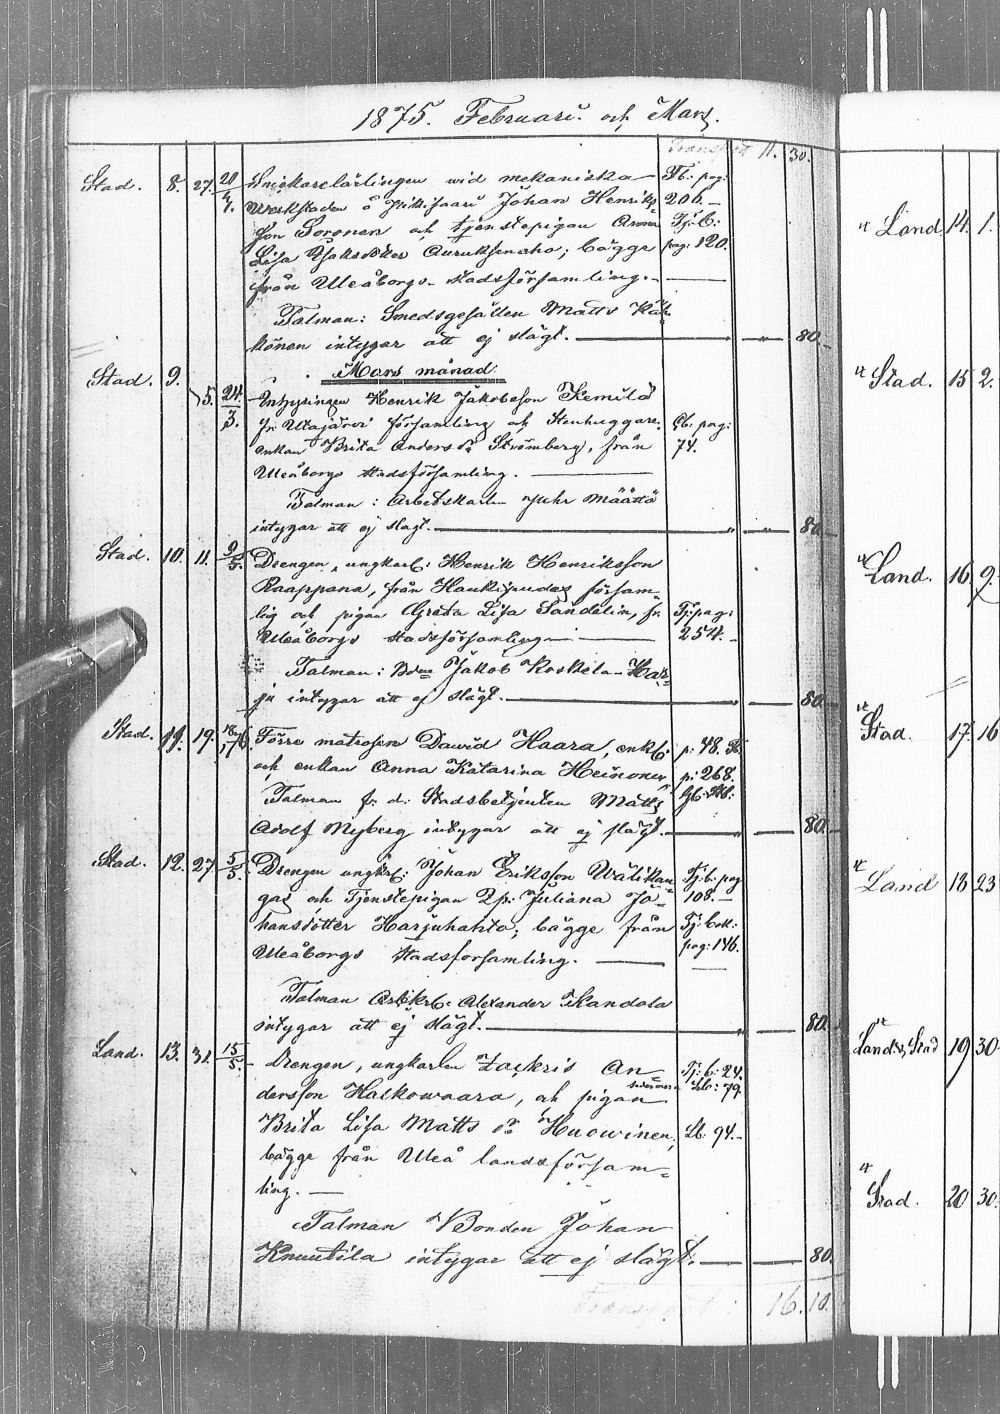 1875. Februari och Mars.
Transport 11. 30.
Stad. 8. 27. 20/4. Snickarelärlingen wid mekaniska Tb. pag:
Werkstaden å Johan Henriks= 206.
son Soronen och tjenstepigan Anna Tj. b:
Lisa Isaksdotter bägge pag: 120.
från Uleåborgs stadsförsamling.
Talman: Smedsgesällen Matts Kär=
könen intygar att ej slägt. — " — 80.
Mars månad.
Stad. 9. 5. 24/3. Inhysingen Henrik Jakobsson Kemilä
fr. Utajärvi församling och Stenhuggare= pag:
enkan Brita Anders dr Strömberg, från 74.
Uleåborgs stadsförsamling.
Talman: Arbetskarlen Juho Määttä
intygar att ej slägt. — " — 80.
Stad. 10. 11. 9/5. Drengen, ungkarl: Henrik Henriksson
Raappana, från Haukipudas försam=
lig och pigan Greta Lisa Sandelin, fr. Tj: pag:
Uleåborgs stadsförsamling 254.
Talman: Jakob Koskela Har=
ju intygar att ej slägt. — 80.
Stad. 11. 19. Förre matrosen Dawid Haara, enkl. p: 48.
och enkan Anna Katarina Heinonen p: 268.
Talman fr. d. Stadsbetjenten Matts
Adolf Nyberg intygar att ej slägt. — " — 80.
Stad. 12. 27. 5/5. Drengen ungkrl: Johan Eriksson Wälikan= Tj: b. pag
gas och Tjenstepigan Juliana Jo= 108.
hansdotter Harjuhahto; bägge från Tj: bok:
Uleåborgs stadsförsamling. pag: 146.
Talman Arbkrl. Alexander Kandola
intygar att ej slägt. — " — 80.
Land. 13. 31. 15/5. Drengen, ungkarlen Zackris An= Tj: b: 24.
dersson Halkowaara, och pigan 79.
Brita Lisa Matts dr Huowinen, Lb. 94.
bägge från Uleå landsförsam=
ling.
Talman Bonden Johan
Knuutila intygar att ej slägt. — 80.
Transport: 16. 10.
Land. 14. 1.
Stad. 15. 2.
Land. 16. 9.
Stad. 17. 16
Land 18 23
Land & Stad 19 30.
Stad. 20 30.